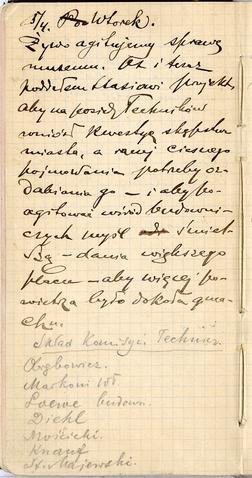 5/4. Wtorek.
Żywo agitujemy sprawę
muzeum. Ot i teraz
poddałem Stasiowi projekt,
aby na posiedz. Techników
wniósł kwestyę skąpstwa
miasta, a raczej ciasnego
pojmowania potrzeby oz-
dabiania go – i aby po-
agitować wśród budowni-
czych myśl śmiel-
szą – dania większego
placu – aby więcej po-
wietrza było dokoła gma-
chu.
Skład Komisyi Technicz.
Obrębowicz.
Markoni Wł.
Loewe budown.
Diehl
Mościcki.
Knauf
St. Majewski.